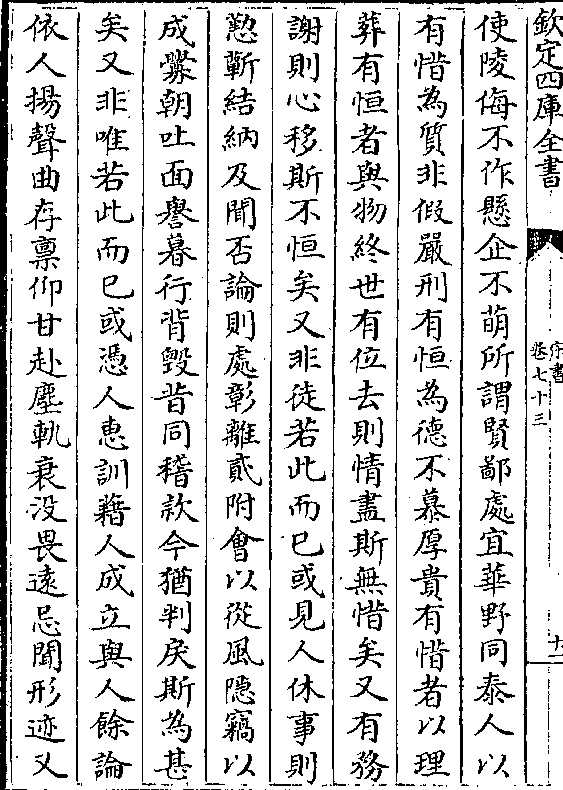 欽定四庫全書
宋書
卷七十三
十一
使陵侮不作懸企不萌所謂賢鄙處宜華野同泰人以
有惜為質非假嚴刑有恒為德不慕厚貴有惜者以理
葬有恒者與物終世有位去則情盡斯無惜矣又有務
謝則心移斯不恒矣又非徒若此而已或見人休事則
懃蘄結納及聞否論則處彰離貳附㑹以從風隠竊以
成釁朝吐面譽暮行背毁昔同稽款今猶判戾斯為甚
矣又非唯若此而已或憑人惠訓藉人成立與人餘論
依人揚聲曲存禀仰甘赴塵軌衰没畏逺忌聞形迹又